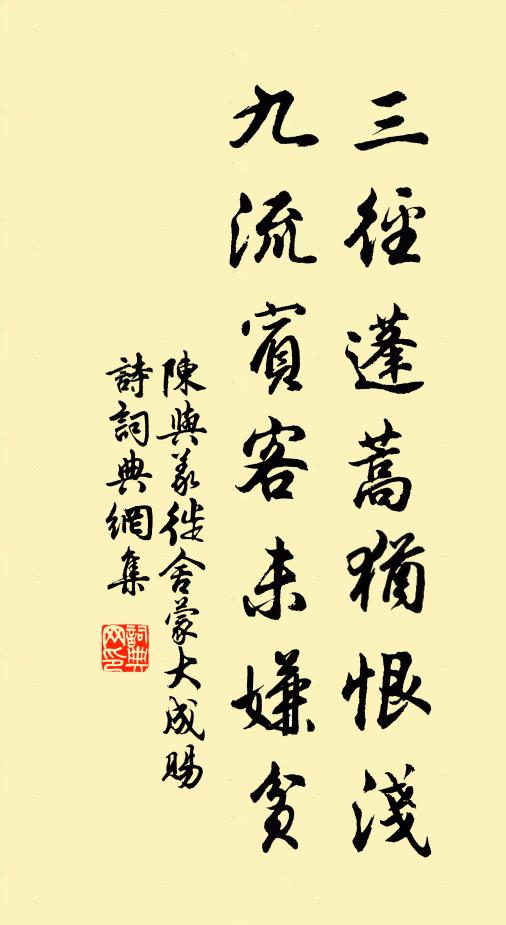 三徑蓬蒿猶恨淺
九流賓客未嫌貧
陳與義徙舍蒙大成賜
詩詞典網集
詞典
网印